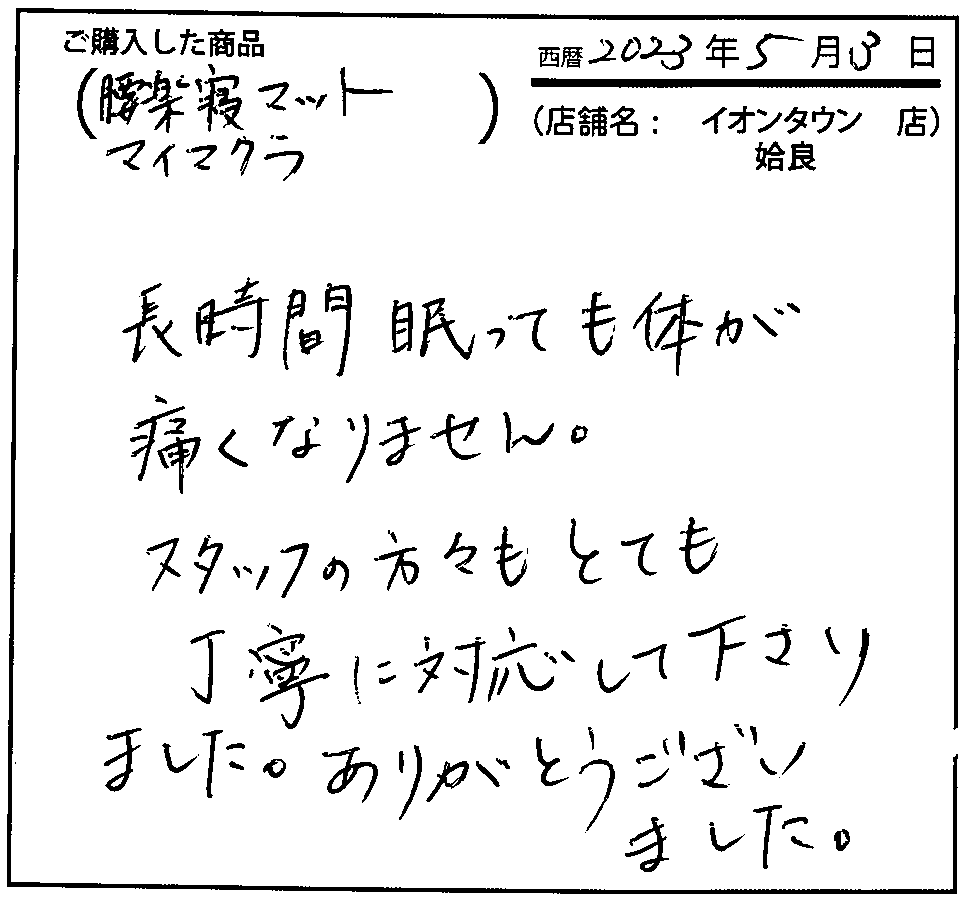 ご購入した商品
西暦 2023 年 5 月 3 日
(腰楽寝マット )
マイマクラ
(店舗名: イオンタウン 店)
姶良
長時間 眠っても体が
痛くなりません。
スタッフの方々も とても
丁寧に対応して下さり
ました。ありがとうござい
ました。